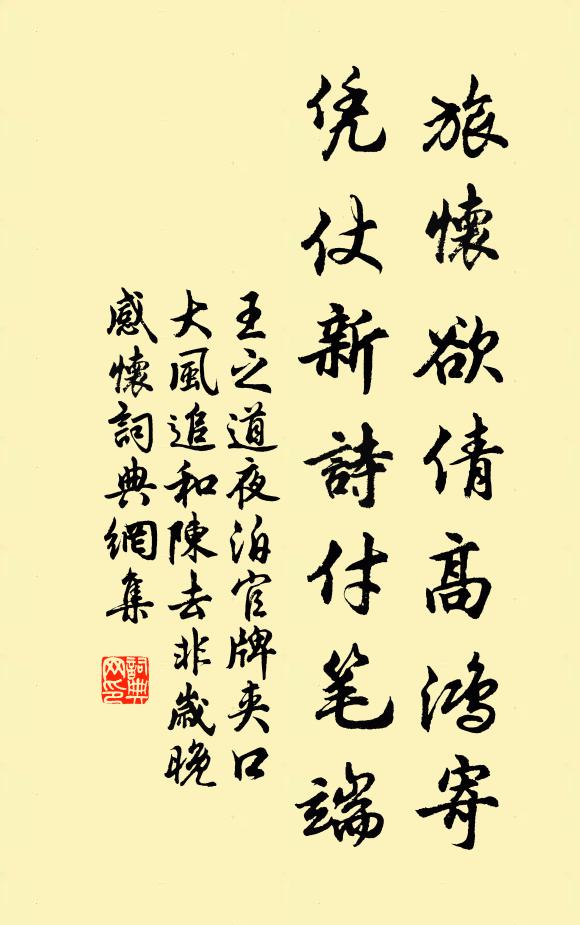 旅懷欲倩高鴻寄
凭仗新詩付笔端
王之道夜泊官牌夹口
大風追和陳去非歲晚
感懷詞典網集
詞典
网印